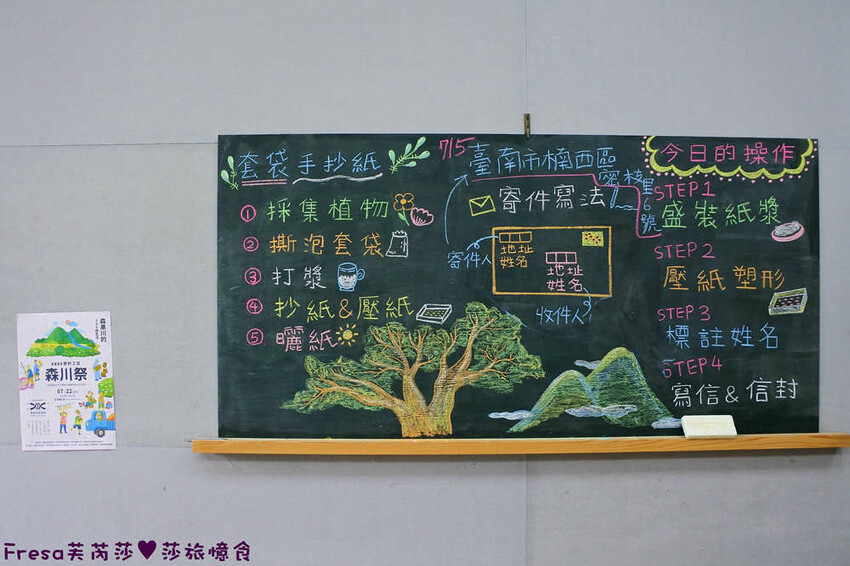 套袋手抄紙
① 採集植物
② 撕泡套袋
③ 打漿
④ 抄紙&壓紙
⑤ 曬紙
715臺南市楠西區
密枝里6號
寄件寫法
寄件人
地址
姓名
地址
姓名
收件人
今日的操作
STEP1
盛裝紙漿
STEP2
壓紙塑形
STEP3
標註姓名
STEP4
寫信&信封
森川祭
07/22
Fresa芙芮莎♥莎旅憶食